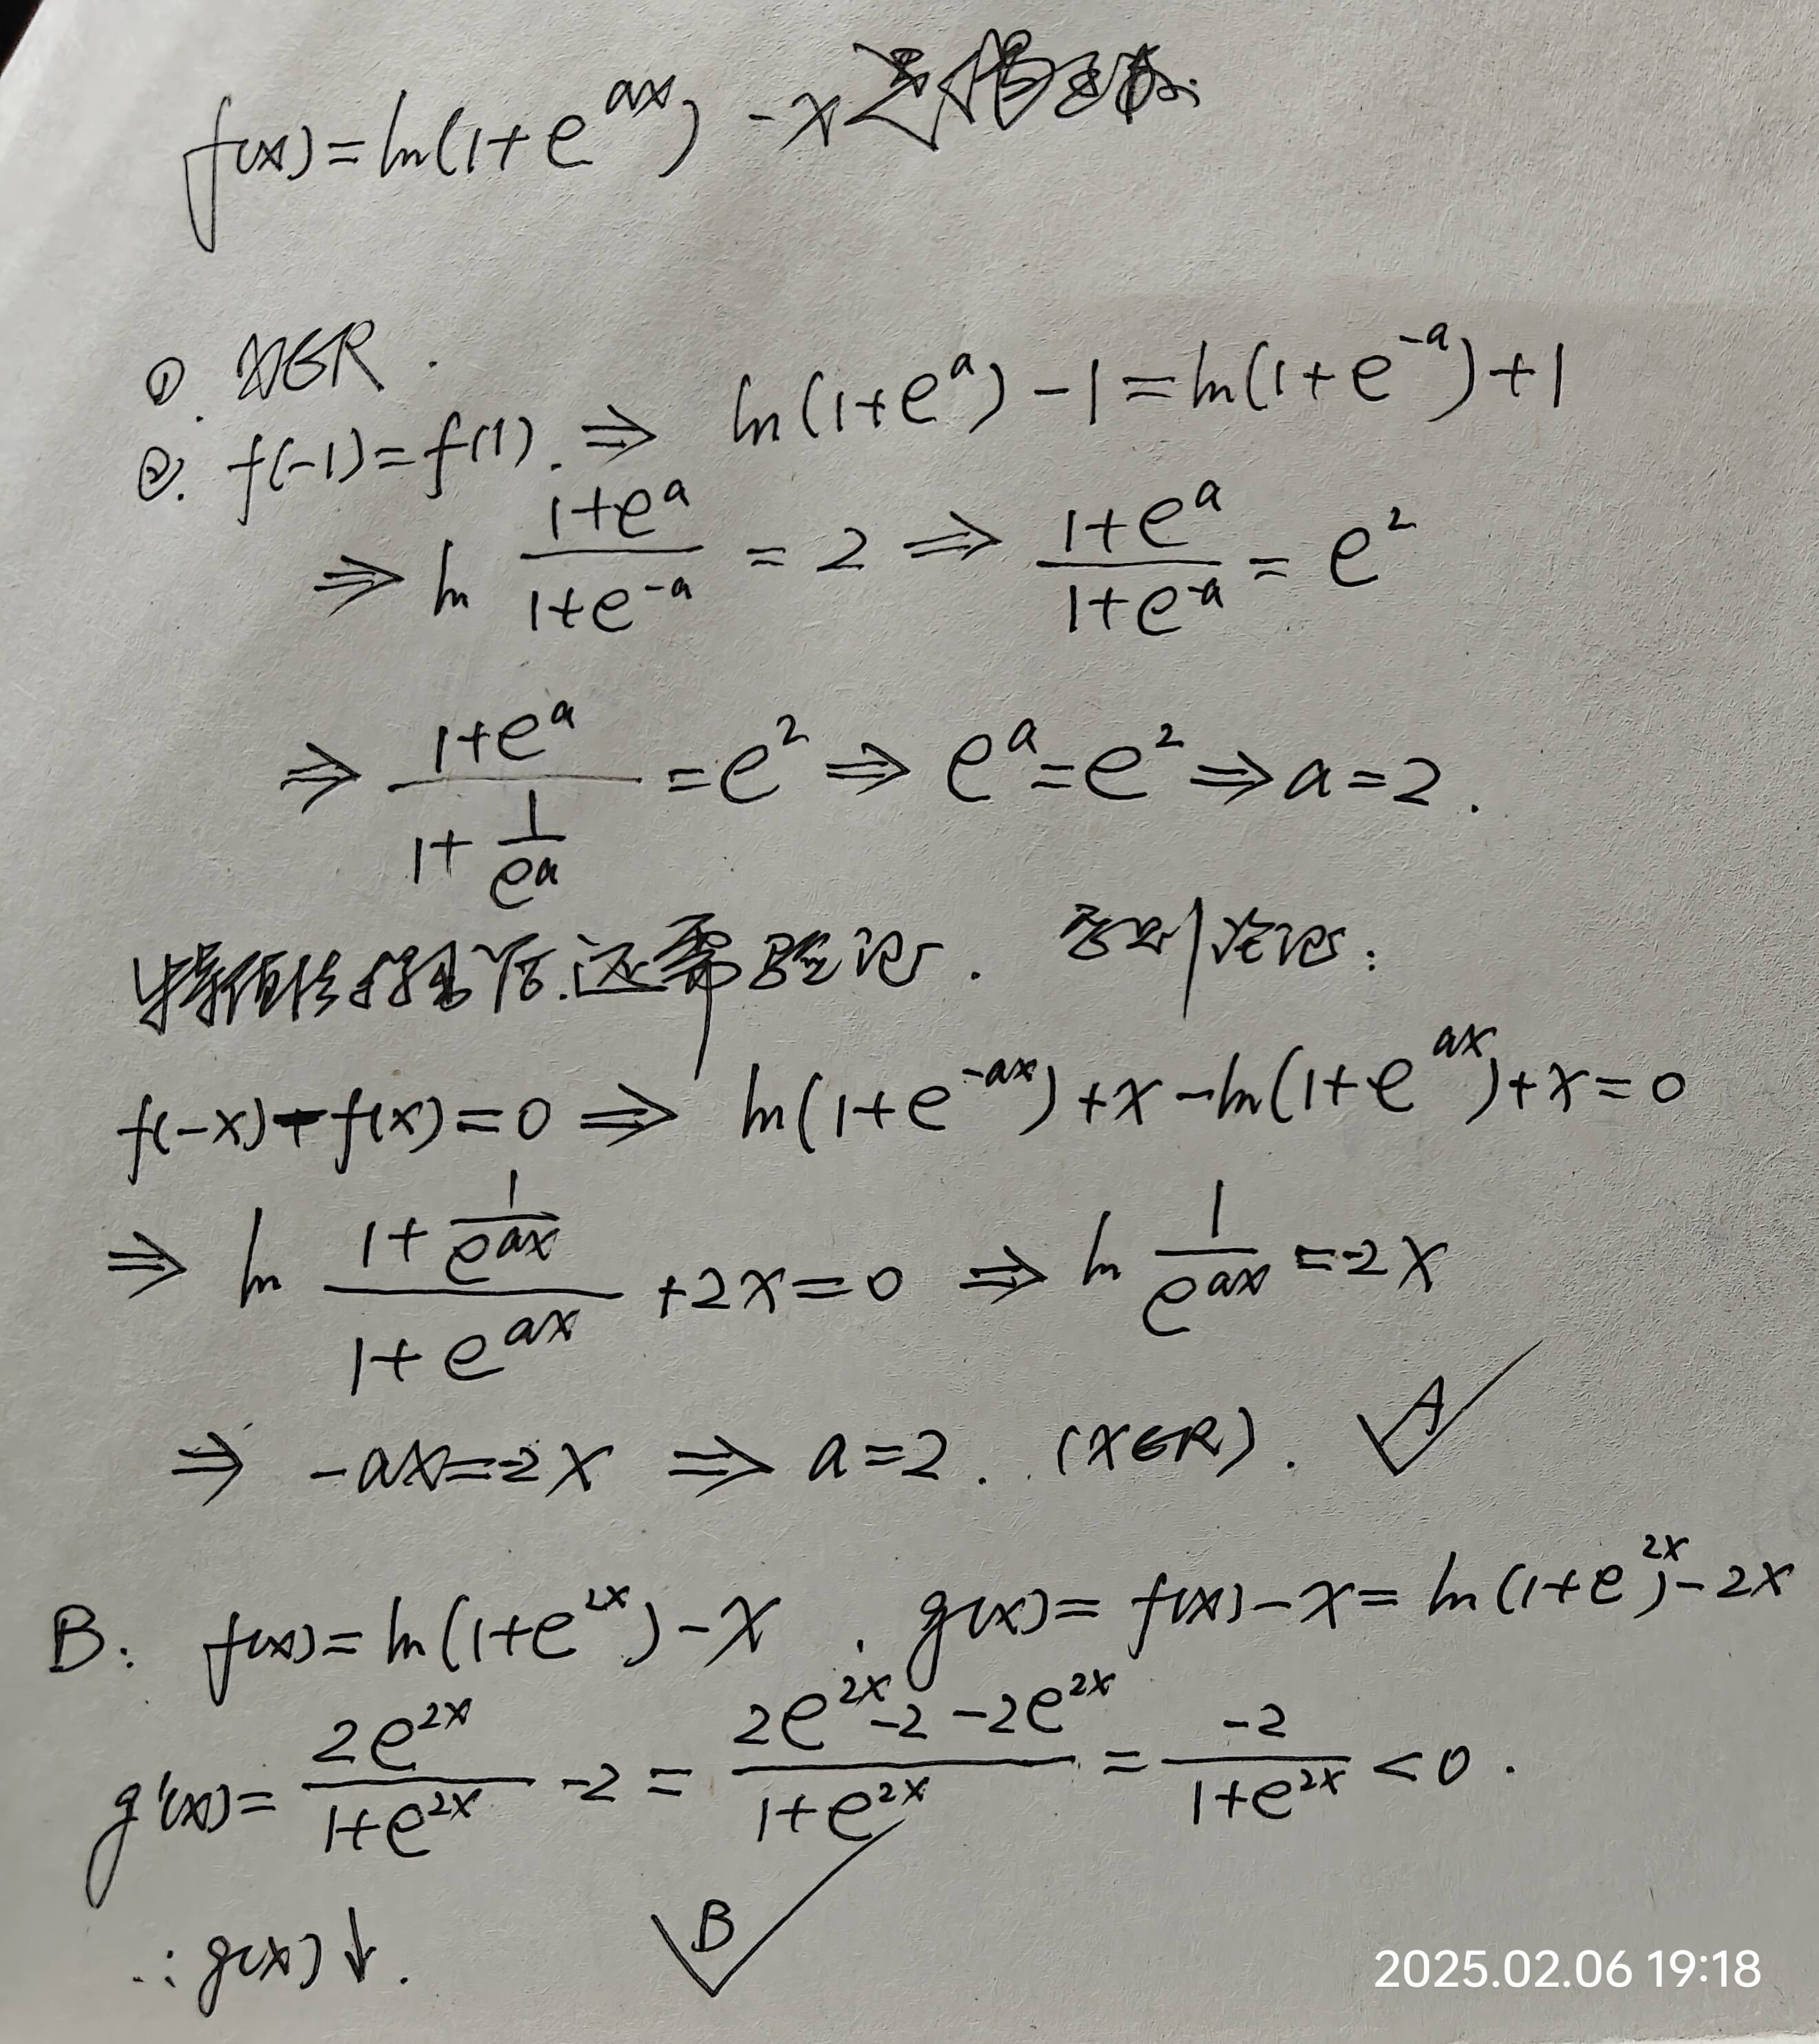 f(x)=ln(1+e^{ax})-x
①. x∈R.
②. f(-1)=f(1). ⇒ ln(1+e^a)-1=ln(1+e^{-a})+1
⇒ ln \frac{1+e^a}{1+e^{-a}} = 2 ⇒ \frac{1+e^a}{1+e^{-a}} = e^2
⇒ \frac{1+e^a}{1+\frac{1}{e^a}} = e^2 ⇒ e^a=e^2 ⇒ a=2.
特值法 还需验证. 否则 :
f(-x)-f(x)=0 ⇒ ln(1+e^{-ax})+x-ln(1+e^{ax})+x=0
⇒ ln \frac{1+\frac{1}{e^{ax}}}{1+e^{ax}} +2x=0 ⇒ ln \frac{1}{e^{ax}} =-2x
⇒ -ax=-2x ⇒ a=2. (x∈R). A
B: f(x)=ln(1+e^{2x})-x . g(x)=f(x)-x=ln(1+e^{2x})-2x
g'(x)= \frac{2e^{2x}}{1+e^{2x}} -2= \frac{2e^{2x}-2-2e^{2x}}{1+e^{2x}} = \frac{-2}{1+e^{2x}} <0.
∴g(x)↓. B
2025.02.06 19:18